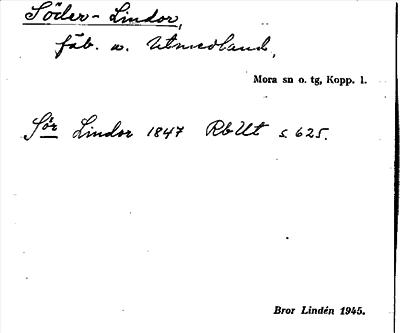 Söder-Lindor,
fäb. u. Utmedland,
Mora sn o. tg, Kopp. l.
Sör Lindor 1847 RbUt s. 625.
Bror Lindén 1945.